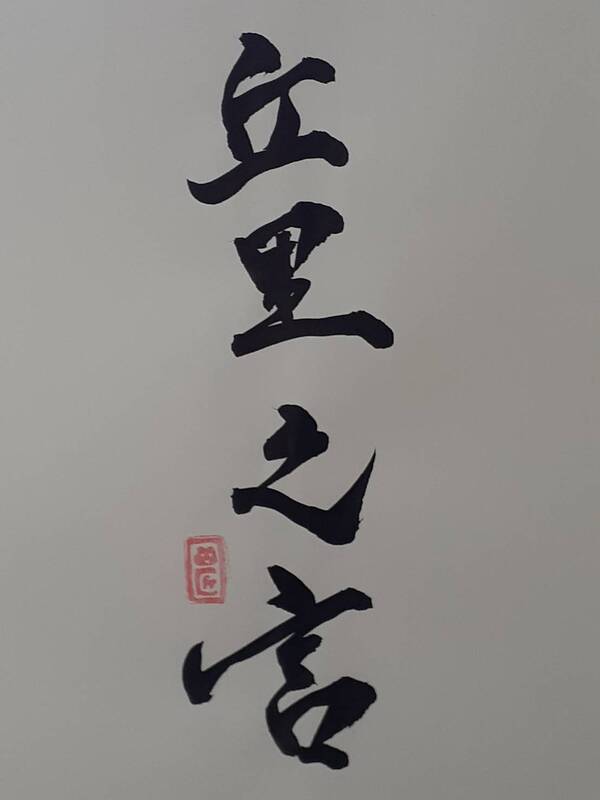 丘里之言